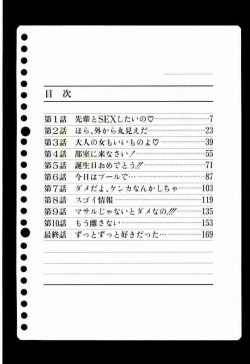 目次
第1話 先輩とSEXしたいの♡ 7
第2話 ほら、外から丸見えだ 23
第3話 大人の女もいいものよ♡ 39
第4話 部室に来なさい! 55
第5話 誕生日おめでとう!! 71
第6話 今日はプールで… 87
第7話 ダメだよ、ケンカなんかしちゃ 103
第8話 スゴイ情報 119
第9話 マサルじゃないとダメなの!!! 135
第10話 もう離さない 153
最終話 ずっとずっと好きだった… 169